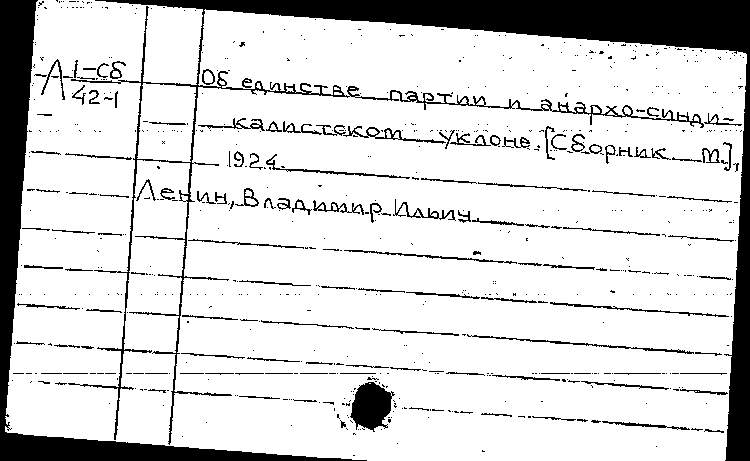 Л 1-Сб
42-1
Об единстве партии и анархо-синди-
калистском уклоне. [Сборник. М.],
1924.
Ленин, Владимир Ильич.